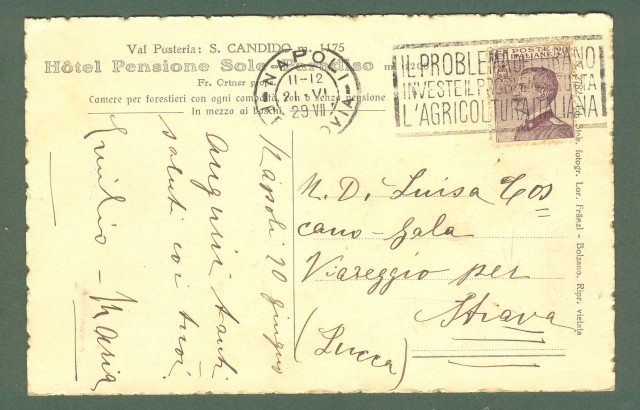 Val Pusteria: S. CANDIDO m. 1175
Hôtel Pensione Sole-Paradiso
Fr. Ortner prop.
Camere per forestieri con ogni comodità, con o senza pensione
In mezzo ai boschi
NAPOLI
11-12
21 VI
29 VII
FERROVIA
IL PROBLEMA GRANO
INVESTE
L'AGRICOLTURA ITALIANA
POSTE
ITALIANE
Napoli 20 giugno
Auguri tanti
saluti coi tuoi
Emilio - Maria
N. D. Luisa Tos
cano-Gala
Viareggio per
Strava
(Lucca)
Stab. fotogr. Lor. Fränzl - Bolzano. Ripr. vietata